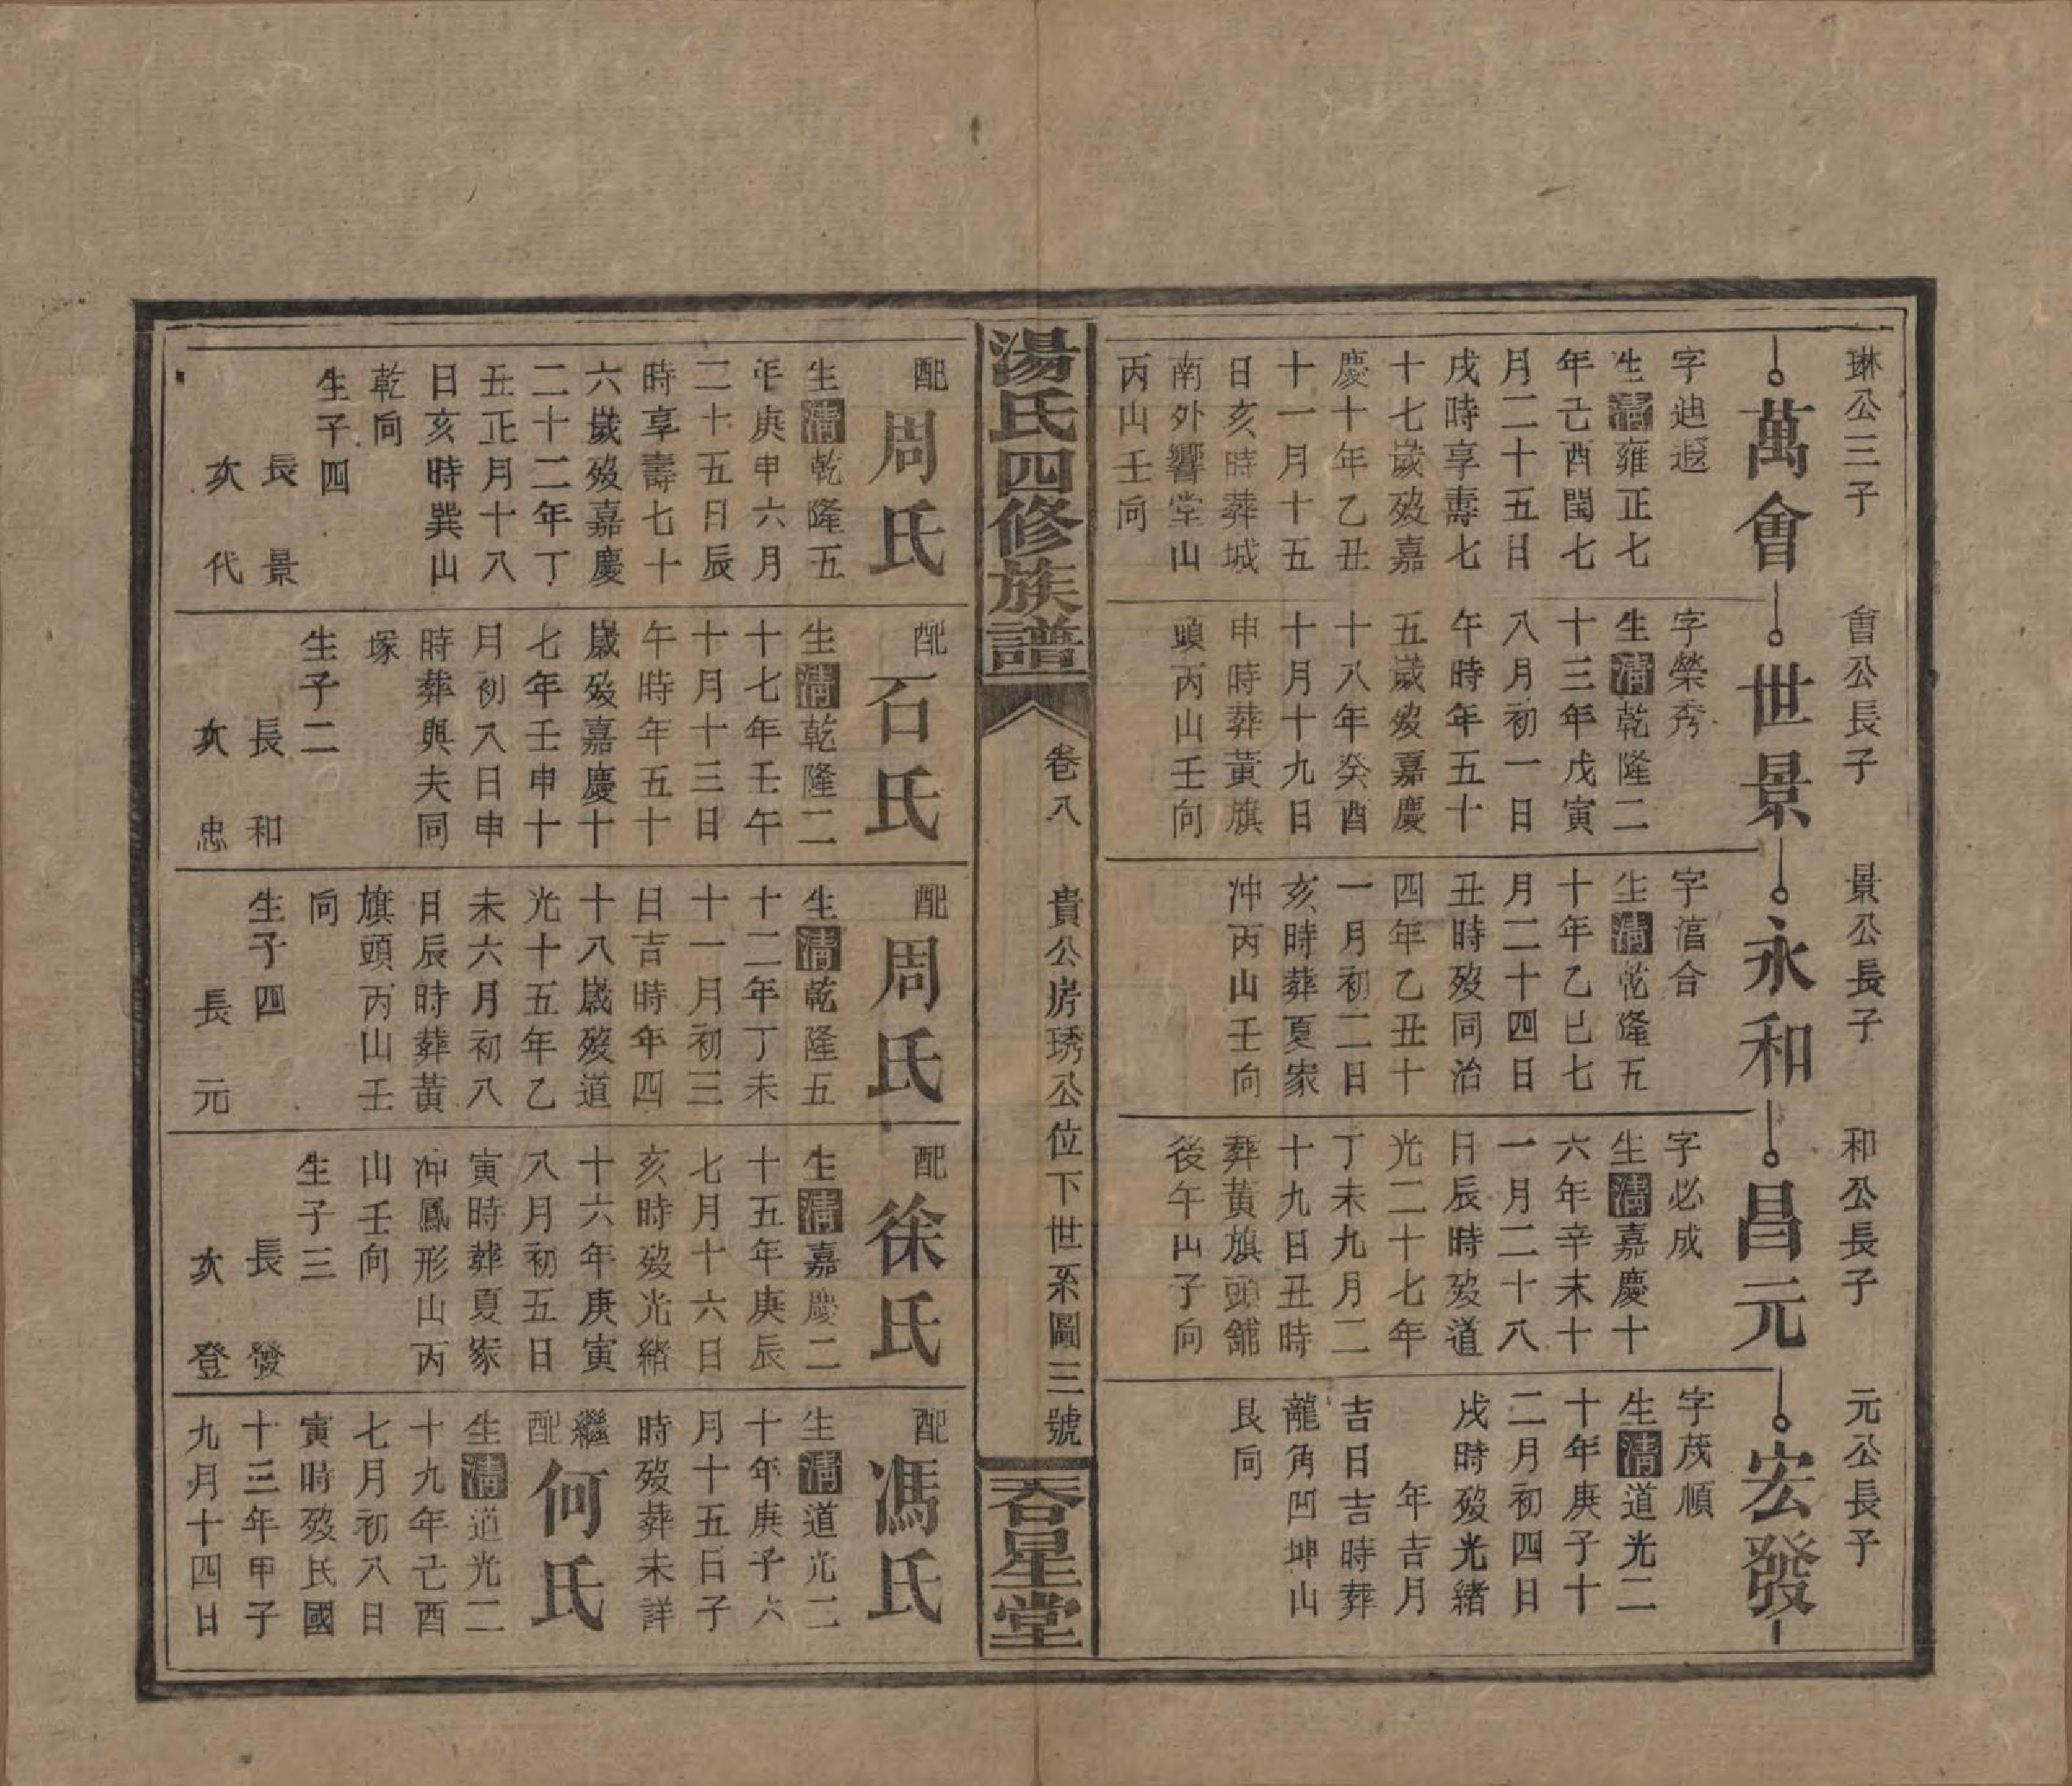 琳公三子
萬會
字迪遐
生清雍正七
年己酉閏七
月二十五日
戌時享壽七
十七歲歿嘉
慶十年乙丑
十一月十五
日亥時葬城
南外響堂山
丙山壬向
會公長子
世景
字榮秀
生清乾隆二
十三年戊寅
八月初一日
午時年五十
五歲歿嘉慶
十八年癸酉
十月十九日
申時葬黃旗
頭丙山壬向
景公長子
永和
字合
生清乾隆五
十年乙巳七
月二十四日
丑時歿同治
四年乙丑十
一月初二日
亥時葬夏家
沖丙山壬向
和公長子
昌元
字必成
生清嘉慶十
六年辛未十
一月二十八
日辰時歿道
光二十七年
丁未九月二
十九日丑時
葬黃旗頭舖
後午山子向
元公長子
宏發
字茂順
生清道光二
十年庚子十
二月初四日
戌時歿光緒
年吉月
吉日吉時葬
龍角凹坤山
艮向
湯氏四修族譜
卷八
貴公房琇公位下世系圖三號
吞星堂
配
周氏
生清乾隆五
年庚申六月
二十五日辰
時享壽七十
六歲歿嘉慶
二十二年丁
丑正月十八
日亥時巽山
乾向
生子四
長景
次代
配
石氏
生清乾隆二
十七年壬午
十月十三日
午時年五十
歲歿嘉慶十
七年壬申十
月初八日申
時葬與夫同
塚
生子二
長和
次忠
配
周氏
生清乾隆五
十二年丁未
十一月初三
日吉時年四
十八歲歿道
光十五年乙
未六月初八
日辰時葬黃
旗頭丙山壬
向
生子四
長元
配
徐氏
生清嘉慶二
十五年庚辰
七月十六日
亥時歿光緒
十六年庚寅
八月初五日
寅時葬夏家
沖鳳形山丙
山壬向
生子三
長發
次登
配
馮氏
生清道光二
十年庚子六
月十五日子
時歿葬未詳
繼配
何氏
生清道光二
十九年己酉
七月初八日
寅時歿民國
十三年甲子
九月十四日